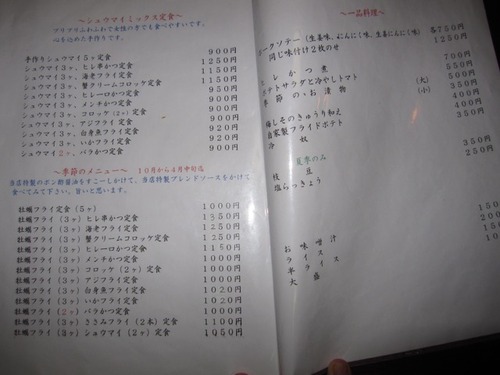 ～シュウマイミックス定食～
プリプリふわふわで女性の方でも食べやすいです。
心を込めた手作りです。
手作りシュウマイ5ヶ定食 900円
シュウマイ3ヶ、ヒレ串かつ定食 1250円
シュウマイ3ヶ、海老フライ定食 1150円
シュウマイ3ヶ、蟹クリームコロッケ定食 1150円
シュウマイ3ヶ、ヒレ一口かつ定食 950円
シュウマイ3ヶ、メンチかつ定食 900円
シュウマイ3ヶ、コロッケ(2ヶ)定食 900円
シュウマイ3ヶ、アジフライ定食 900円
シュウマイ3ヶ、白身魚フライ定食 920円
シュウマイ3ヶ、いかフライ定食 920円
シュウマイ2ヶ、バラかつ定食 900円
～季節のメニュー～ 10月から4月中旬迄
当店特製のポン酢醤油をすこーしかけて、当店特製ブレンドソースをかけて
食べてみて下さい。旨いと思います。
牡蠣フライ定食(5ヶ) 1000円
牡蠣フライ(3ヶ)ヒレ串かつ定食 1350円
牡蠣フライ(3ヶ)海老フライ定食 1250円
牡蠣フライ(3ヶ)蟹クリームコロッケ定食 1250円
牡蠣フライ(3ヶ)ヒレ一口かつ定食 1150円
牡蠣フライ(3ヶ)メンチかつ定食 1000円
牡蠣フライ(3ヶ)コロッケ(2ヶ)定食 1000円
牡蠣フライ(3ヶ)アジフライ定食 1000円
牡蠣フライ(3ヶ)白身魚フライ定食 1020円
牡蠣フライ(3ヶ)いかフライ定食 1020円
牡蠣フライ(2ヶ)バラかつ定食 1000円
牡蠣フライ(3ヶ)ささみフライ(2本)定食 1100円
牡蠣フライ(3ヶ)シュウマイ(2ヶ)定食 1050円
～一品料理～
ークソテー(生姜味、にんにく味、生姜にんにく味) 各750円
同じ味付け2枚のせ 1250円
ヒレかつ煮 700円
ポテトサラダと冷やしトマト 550円
季節のお漬物 (大) 500円
(小) 350円
梅しそのきゅうり和え 400円
自家製フライドポテト 400円
冷奴 350円
夏季のみ
枝豆 350円
塩らっきょう 250円
お味噌汁
ライス
半ライス
大盛